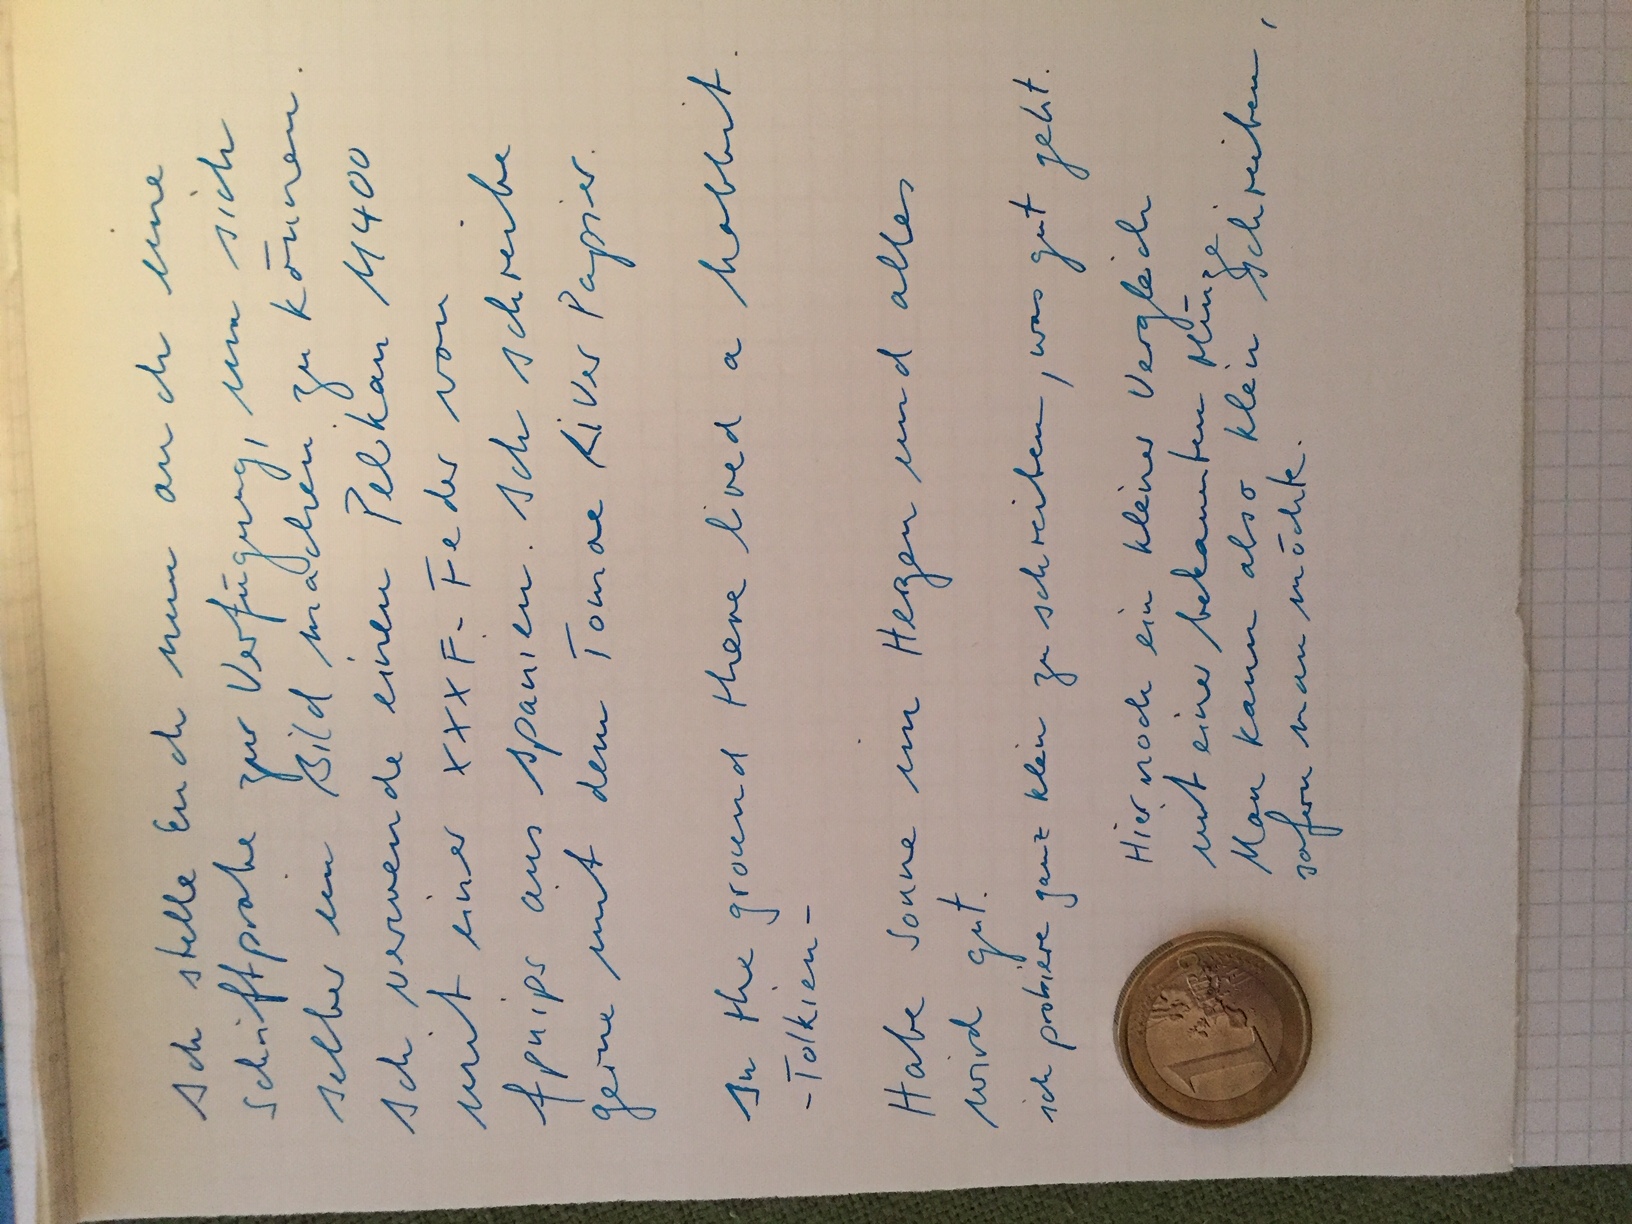 Ich stelle Euch nun auch eine
Schriftprobe zur Verfügung, um sich
selber ein Bild machen zu können.
Ich verwende einen Pelikan M400
mit einer XXXF-Feder von
fpnips aus Spanien. Ich schreibe
gerne mit dem Tomoe River Papier.
In the ground there lived a hobbit.
-Tolkien-
Habe Sonne im Herzen und alles
wird gut.
ich probiere ganz klein zu schreiben, was gut geht.
Hier noch ein kleiner Vergleich
mit einer bekannten Münze
Man kann also klein schreiben,
sofern man möchte.
1